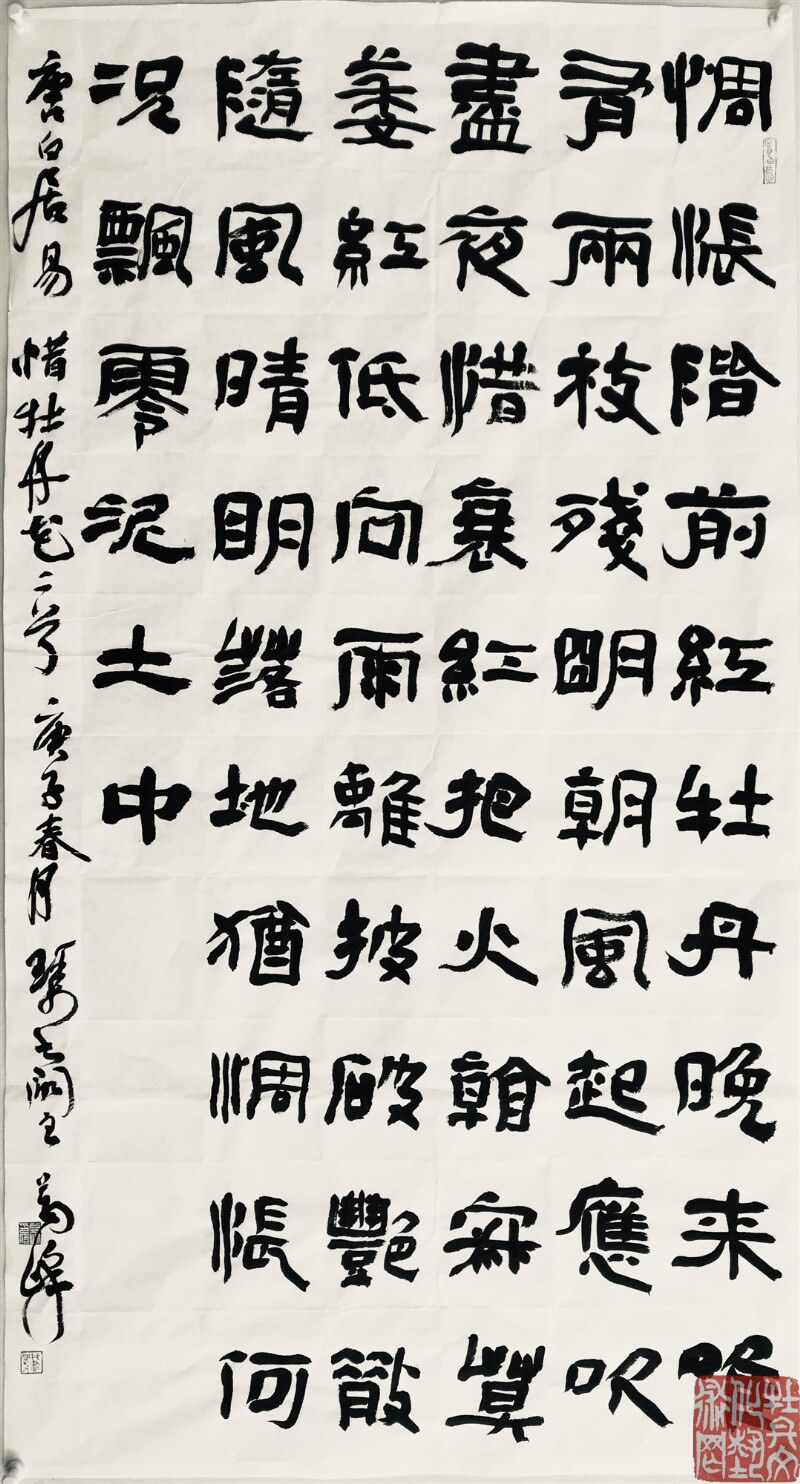 惆悵階前紅牡丹晚来唯
有兩枝殘明朝風起應吹
盡夜惜衰紅把火看寂莫
萎紅低向雨離披破豔散
隨風晴明落地猶惆悵何
況飄零泥土中
唐白居易 惜牡丹花二首 庚子春月 閣主 萬峰